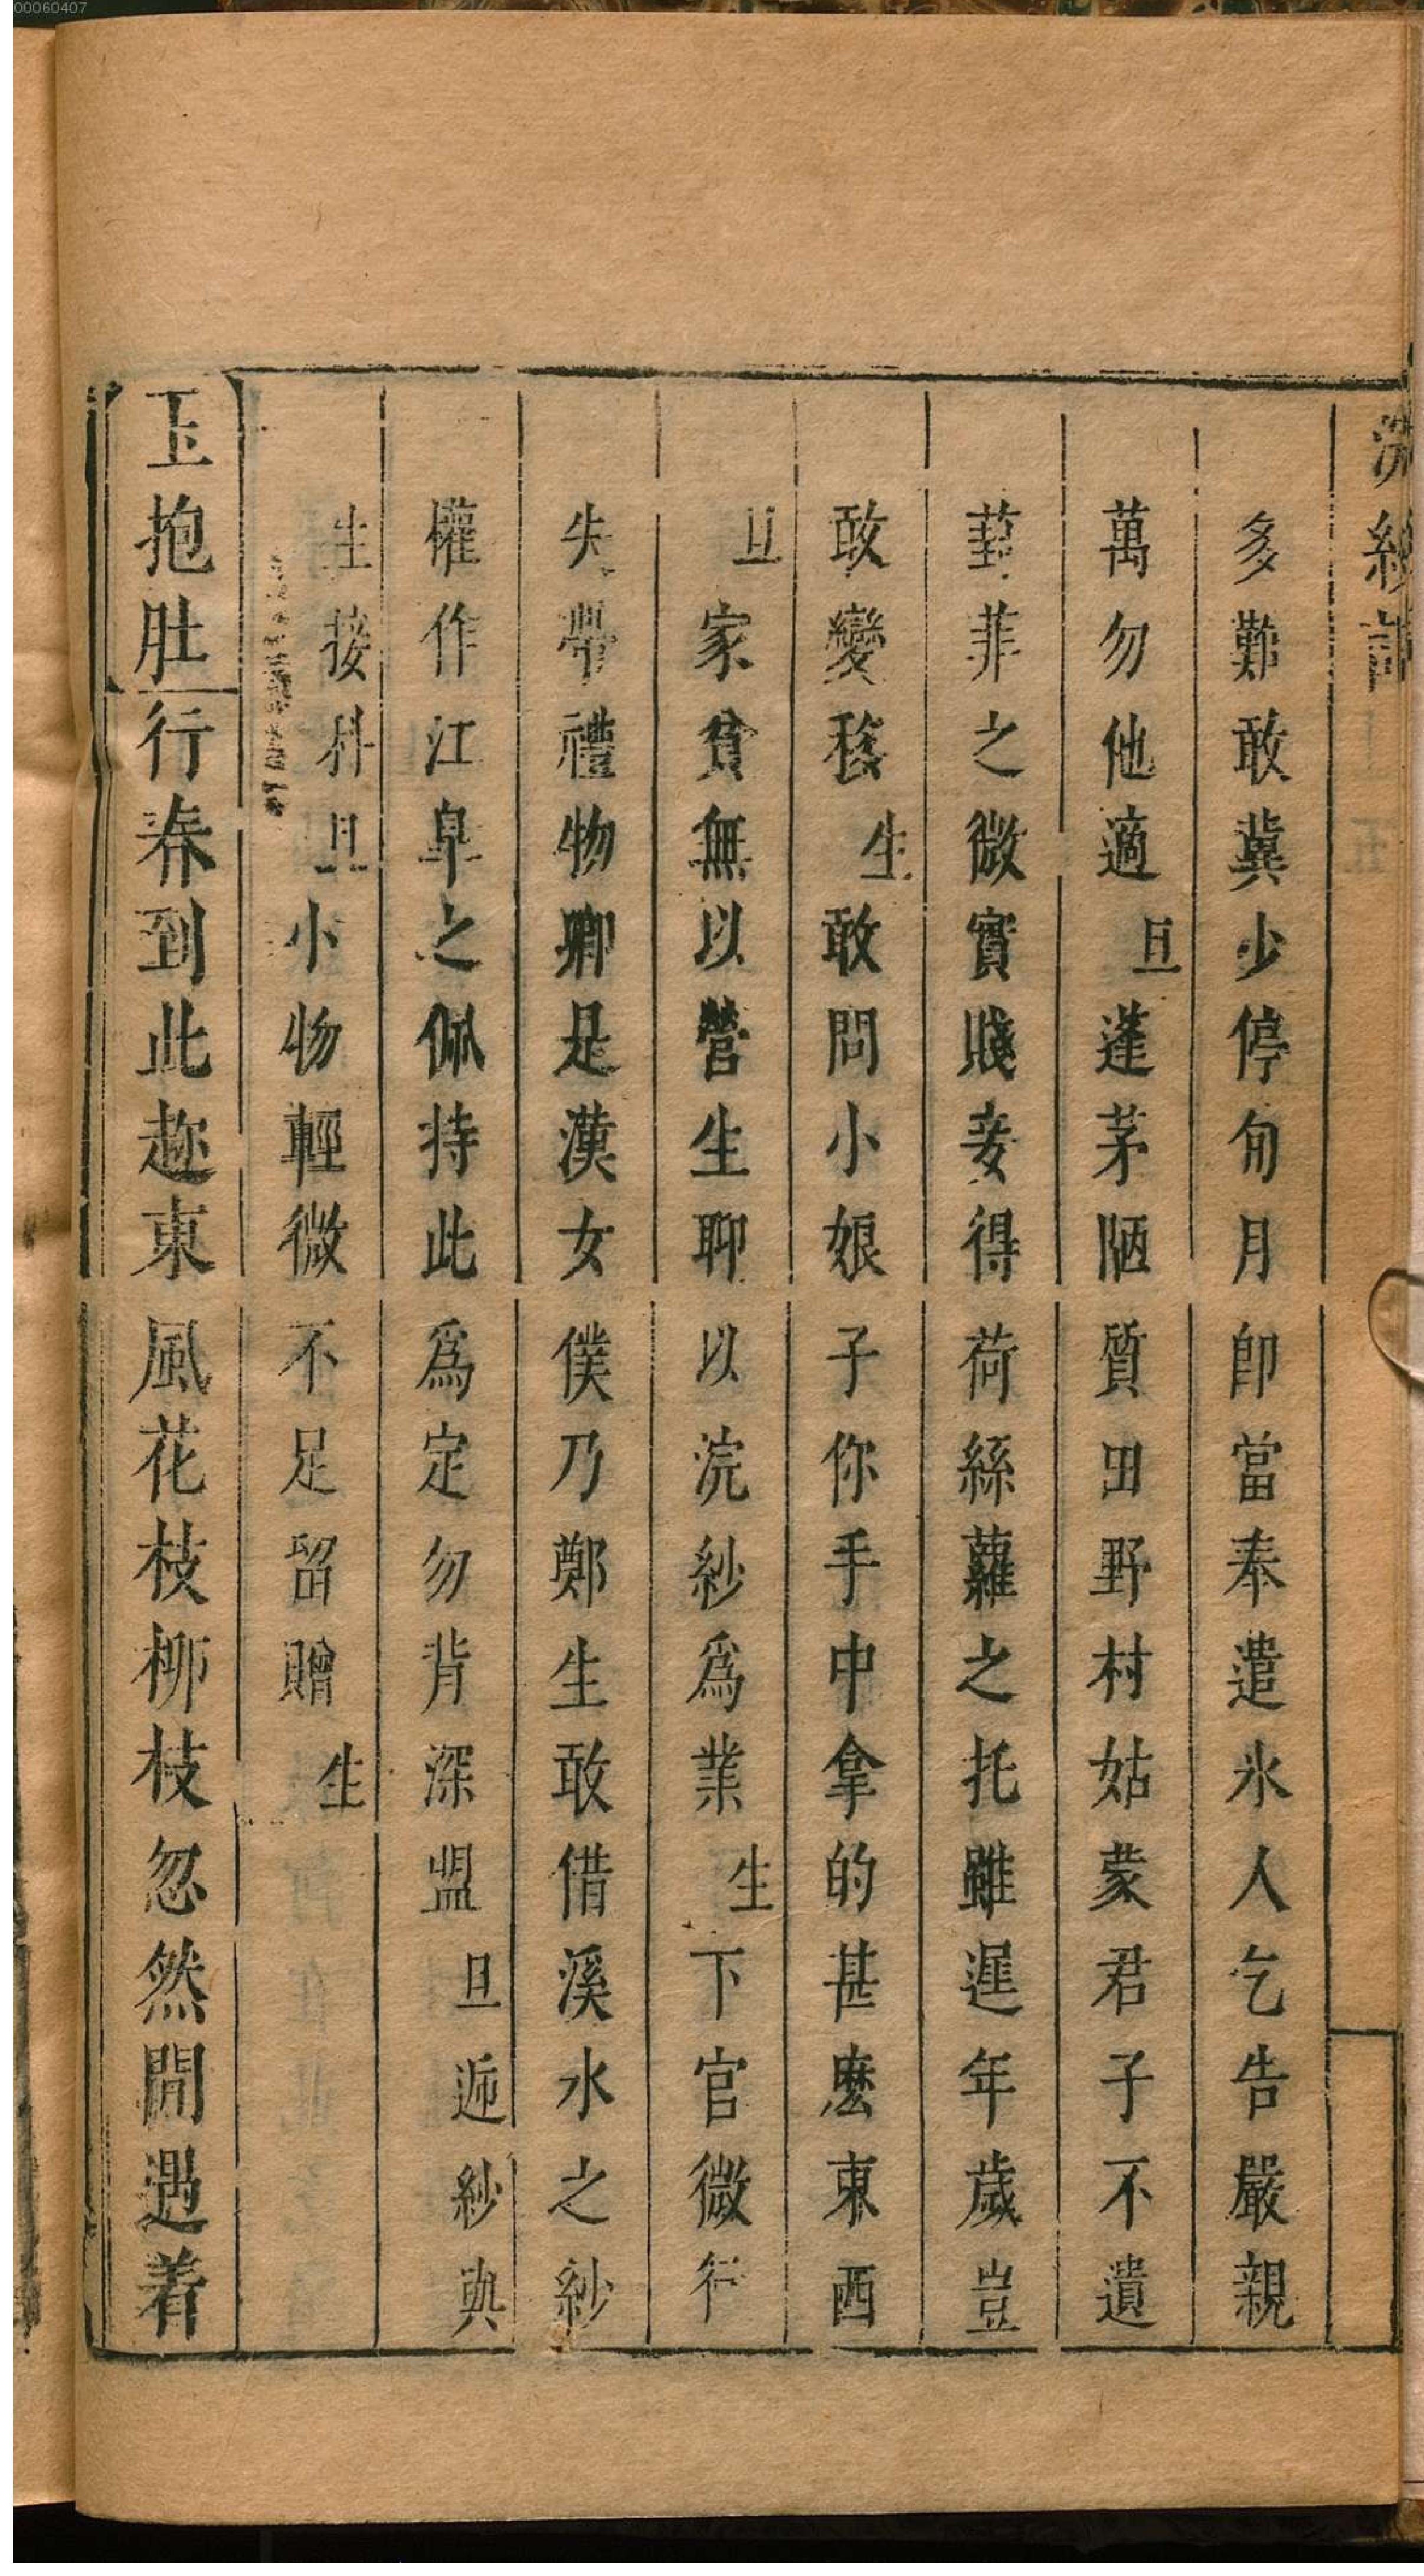 00060407
浣紗記
多難敢冀少停旬月卽當奉遣氷人乞告嚴親
萬勿他適旦蓬茅陋質田野村姑蒙君子不遺
葑菲之微實賤妾得荷絲蘿之托雖遲年歲豈
敢變移生敢問小娘子你手中拿的甚麽東西
旦家貧無以營生聊以浣紗爲業生下官微行
失帶禮物卿是漢女僕乃鄭生敢借溪水之紗
權作江皐之佩持此爲定勿背深盟旦遞紗與
生接科旦小物輕微不足留贈生
玉抱肚行春到此趂東風花枝柳枝忽然間遇着